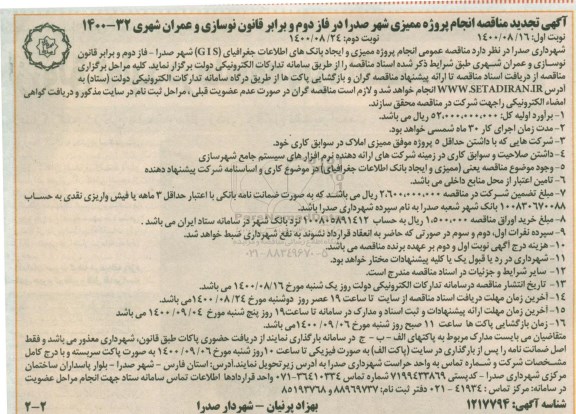 آگهی تجدید مناقصه انجام پروژه ممیزی شهر صدرا در فاز دوم و برابر قانون نوسازی و عمران شهری ۳۲-۱۴۰۰
نوبت اول: ۱۴۰۰/۰۸/۱۶ نوبت دوم: ۱۴۰۰/۰۸/۲۴
شهرداری صدرا در نظر دارد مناقصه عمومی انجام پروژه ممیزی و ایجاد بانک های اطلاعات جغرافیای (GIS) شهر صدرا - فاز دوم و برابر قانون
نوسازی و عمران شهری طبق شرایط ذکر شده اسناد مناقصه را از طریق سامانه تدارکات الکترونیکی دولت برگزار نماید. کلیه مراحل برگزاری
مناقصه از دریافت اسناد مناقصه تا ارائه پیشنهاد مناقصه گران و بازگشایی پاکت ها از طریق درگاه سامانه تدارکات الکترونیکی دولت (ستاد) به
آدرس WWW.SETADIRAN.IR انجام خواهد شد و لازم است مناقصه گران در صورت عدم عضویت قبلی ، مراحل ثبت نام در سایت مذکور و دریافت گواهی
امضاء الکترونیکی را جهت شرکت در مناقصه محقق سازند.
۱- برآورد اولیه کل: ۵۲,۰۰۰,۰۰۰,۰۰۰ ریال می باشد.
۲- مدت زمان اجرای کار ۳۰ ماه شمسی خواهد بود.
۳- شرکت هایی که با داشتن حداقل ۵ پروژه موفق ممیزی املاک در سوابق کاری خود.
۴- داشتن صلاحیت و سوابق کاری در زمینه شرکت های ارائه دهنده نرم افزار های سیستم جامع شهرسازی
۵- وجود موضوع مناقصه یعنی (ممیزی و ایجاد بانک اطلاعات جغرافیای) در موضوع کاری و اساسنامه شرکت پیشنهاد دهنده
۶- تامین اعتبار از محل منابع داخلی می باشد.
۷- مبلغ تضمین شرکت در مناقصه ۲,۶۰۰,۰۰۰,۰۰۰ ریال می باشد که به صورت ضمانت نامه بانکی با اعتبار حداقل ۳ ماهه یا فیش واریزی نقدی به حساب
۱۰۰۸۳۰۶۷۰۰۸۸ بانک شهر شعبه صدرا به نام سپرده شهرداری صدرا باشد.
۸- مبلغ خرید اوراق مناقصه ۱,۵۰۰,۰۰۰ ریال به حساب ۱۰۰۸۰۵۸۹۱۴۱۲ نزد بانک شهر در سامانه ستاد ایران می باشد.
۹- سپرده نفرات اول، دوم و سوم در صورتی که حاضر به انعقاد قرارداد نشوند به نفع شهرداری ضبط خواهد شد.
۱۰- هزینه درج آگهی نوبت اول و دوم بر عهده برنده مناقصه می باشد.
۱۱- شهرداری در رد یا قبول یک یا کلیه پیشنهادات مختار خواهد بود.
۱۲- سایر شرایط و جزئیات در اسناد مناقصه مندرج است.
۱۳- تاریخ انتشار مناقصه درسامانه تدارکات الکترونیکی دولت روز یک شنبه مورخ ۱۴۰۰/۰۸/۱۶ می باشد.
۱۴- آخرین زمان مهلت دریافت اسناد مناقصه از سایت تا ساعت ۱۹ عصر روز دوشنبه مورخ ۱۴۰۰/۰۸/۲۴ می باشد.
۱۵- آخرین زمان مهلت ارائه پیشنهادات و ثبت اسناد و مدارک در سامانه تا ساعت۱۹ روز پنج شنبه مورخ ۱۴۰۰/۰۹/۰۴ می باشد
۱۶- زمان بازگشایی پاکت ها ساعت ۱۱ صبح روز شنبه مورخ ۱۴۰۰/۰۹/۰۶می باشد.
متقاضیان می بایست مدارک مربوط به پاکتهای الف - ب - ج در سامانه بارگذاری نمایند از دریافت حضوری پاکات طبق قانون، شهرداری معذور می باشد و فقط
اصل ضمانت نامه را پس از بارگذاری در سایت (پاکت الف) به صورت فیزیکی تا ساعت ۱۰ روز شنبه مورخ ۱۴۰۰/۰۹/۰۶ به صورت پاکت سربسته و با درج کامل
مشخصات شرکت و شماره تماس به واحد حراست شهرداری صدرا به آدرس زیرتحویل نمایند.آدرس: استان فارس - شهر صدرا - بلوار پاسداران ساختمان
مرکزی شهرداری صدرا - کدپستی ۷۱۹۹۴۳۳۸۶۹ شماره تماس ۳۶۴۱۰۳۳۴-۰۷۱ واحد قراردادها اطلاعات تماس سامانه ستاد جهت انجام مراحل عضویت
در سامانه: مرکز تماس : ۴۱۹۳۴ - ۰۲۱ دفتر ثبت نام: ۸۸۹۶۹۷۳۷ و ۸۵۱۹۳۷۶۸
شناسه آگهی: ۱۲۱۷۷۹۴ بهزاد پرنیان - شهردار صدرا ۲-۲